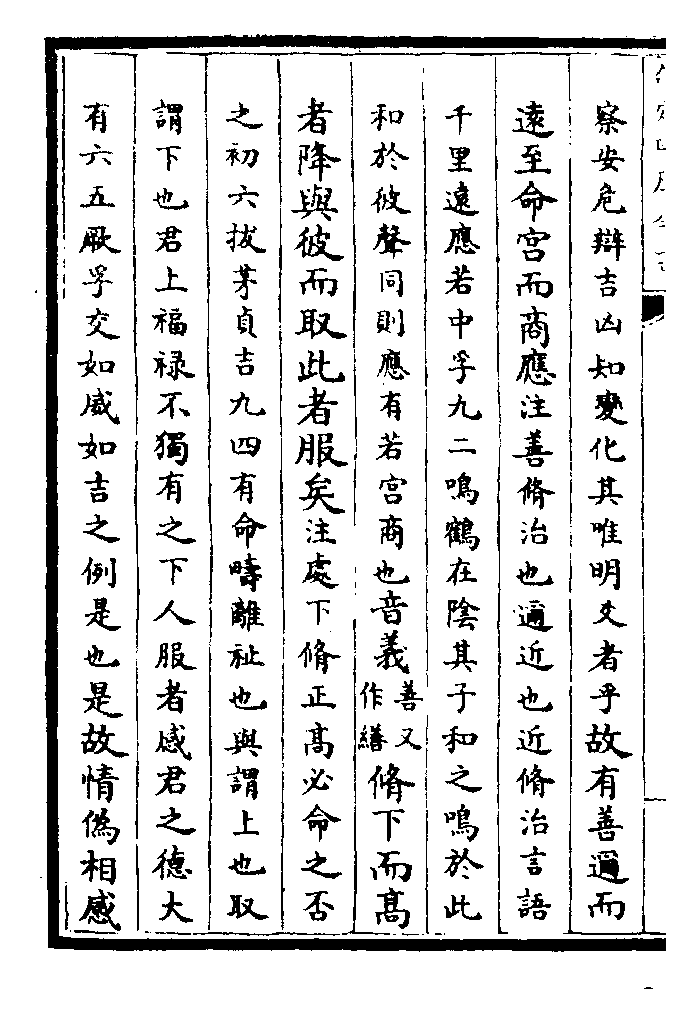 察安危辯吉凶知變化其唯明爻者乎故有善邇而
遠至命宮而商應注善脩治也邇近也近脩治言語
千里遠應若中孚九二鳴鶴在陰其子和之鳴於此
和於彼聲同則應有若宫商也音義善又作繕脩下而髙
者降與彼而取此者服矣注處下脩正髙必命之否
之初六拔茅貞吉九四有命疇離祉也與謂上也取
謂下也君上福禄不獨有之下人服者感君之德大
有六五厥孚交如威如吉之例是也是故情偽相感